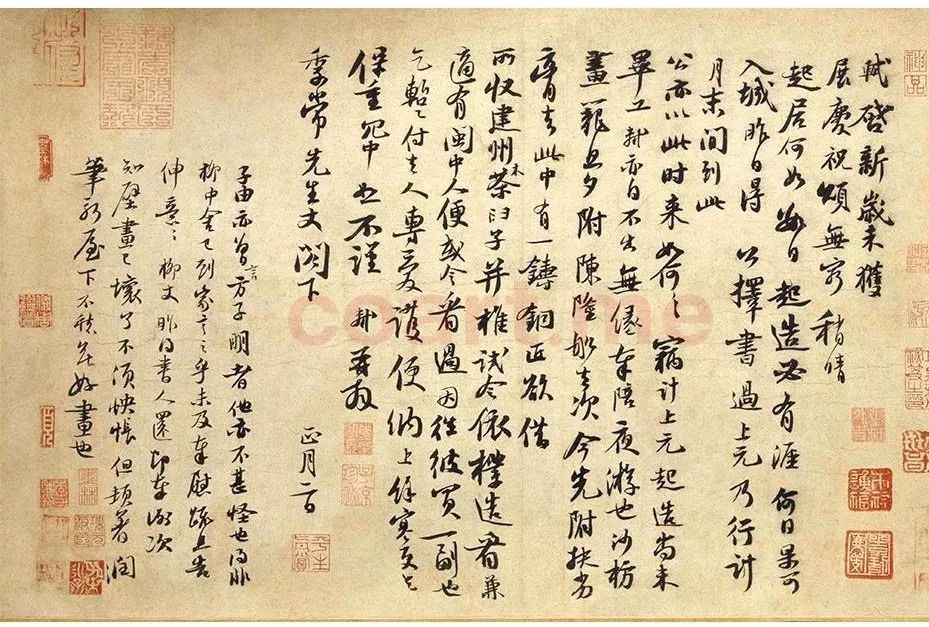 軾啓新歲未獲
展慶祝頌無窮稍晴
起居何如數日起造必有涯何日果可
入城昨日得公擇書過上元乃行計
月末間到此
公亦以此時来如何〻竊計上元起造尚未
畢工軾亦自不出無緣奉陪夜游也沙枋
畫籠旦夕附陳隆船去次今先附扶劣
膏去此中有一鑄銅匠欲借
所收建州木茶臼子并椎試令依樣造看兼
適有閩中人便或令看過因往彼買一副也
乞暫付去人專愛護便納上餘寒更乞
保重冗中恕不謹軾再拜
季常先生丈閤下
正月二日
子由亦曾言方子明者他亦不甚怪也得非
柳中舍已到家言之乎未及奉慰疏且告
伸意〻柳丈昨得書人還即奉謝次
知壁畫已壞了不須怏悵但頓著潤
筆新屋下不愁無好畫也
coart.me